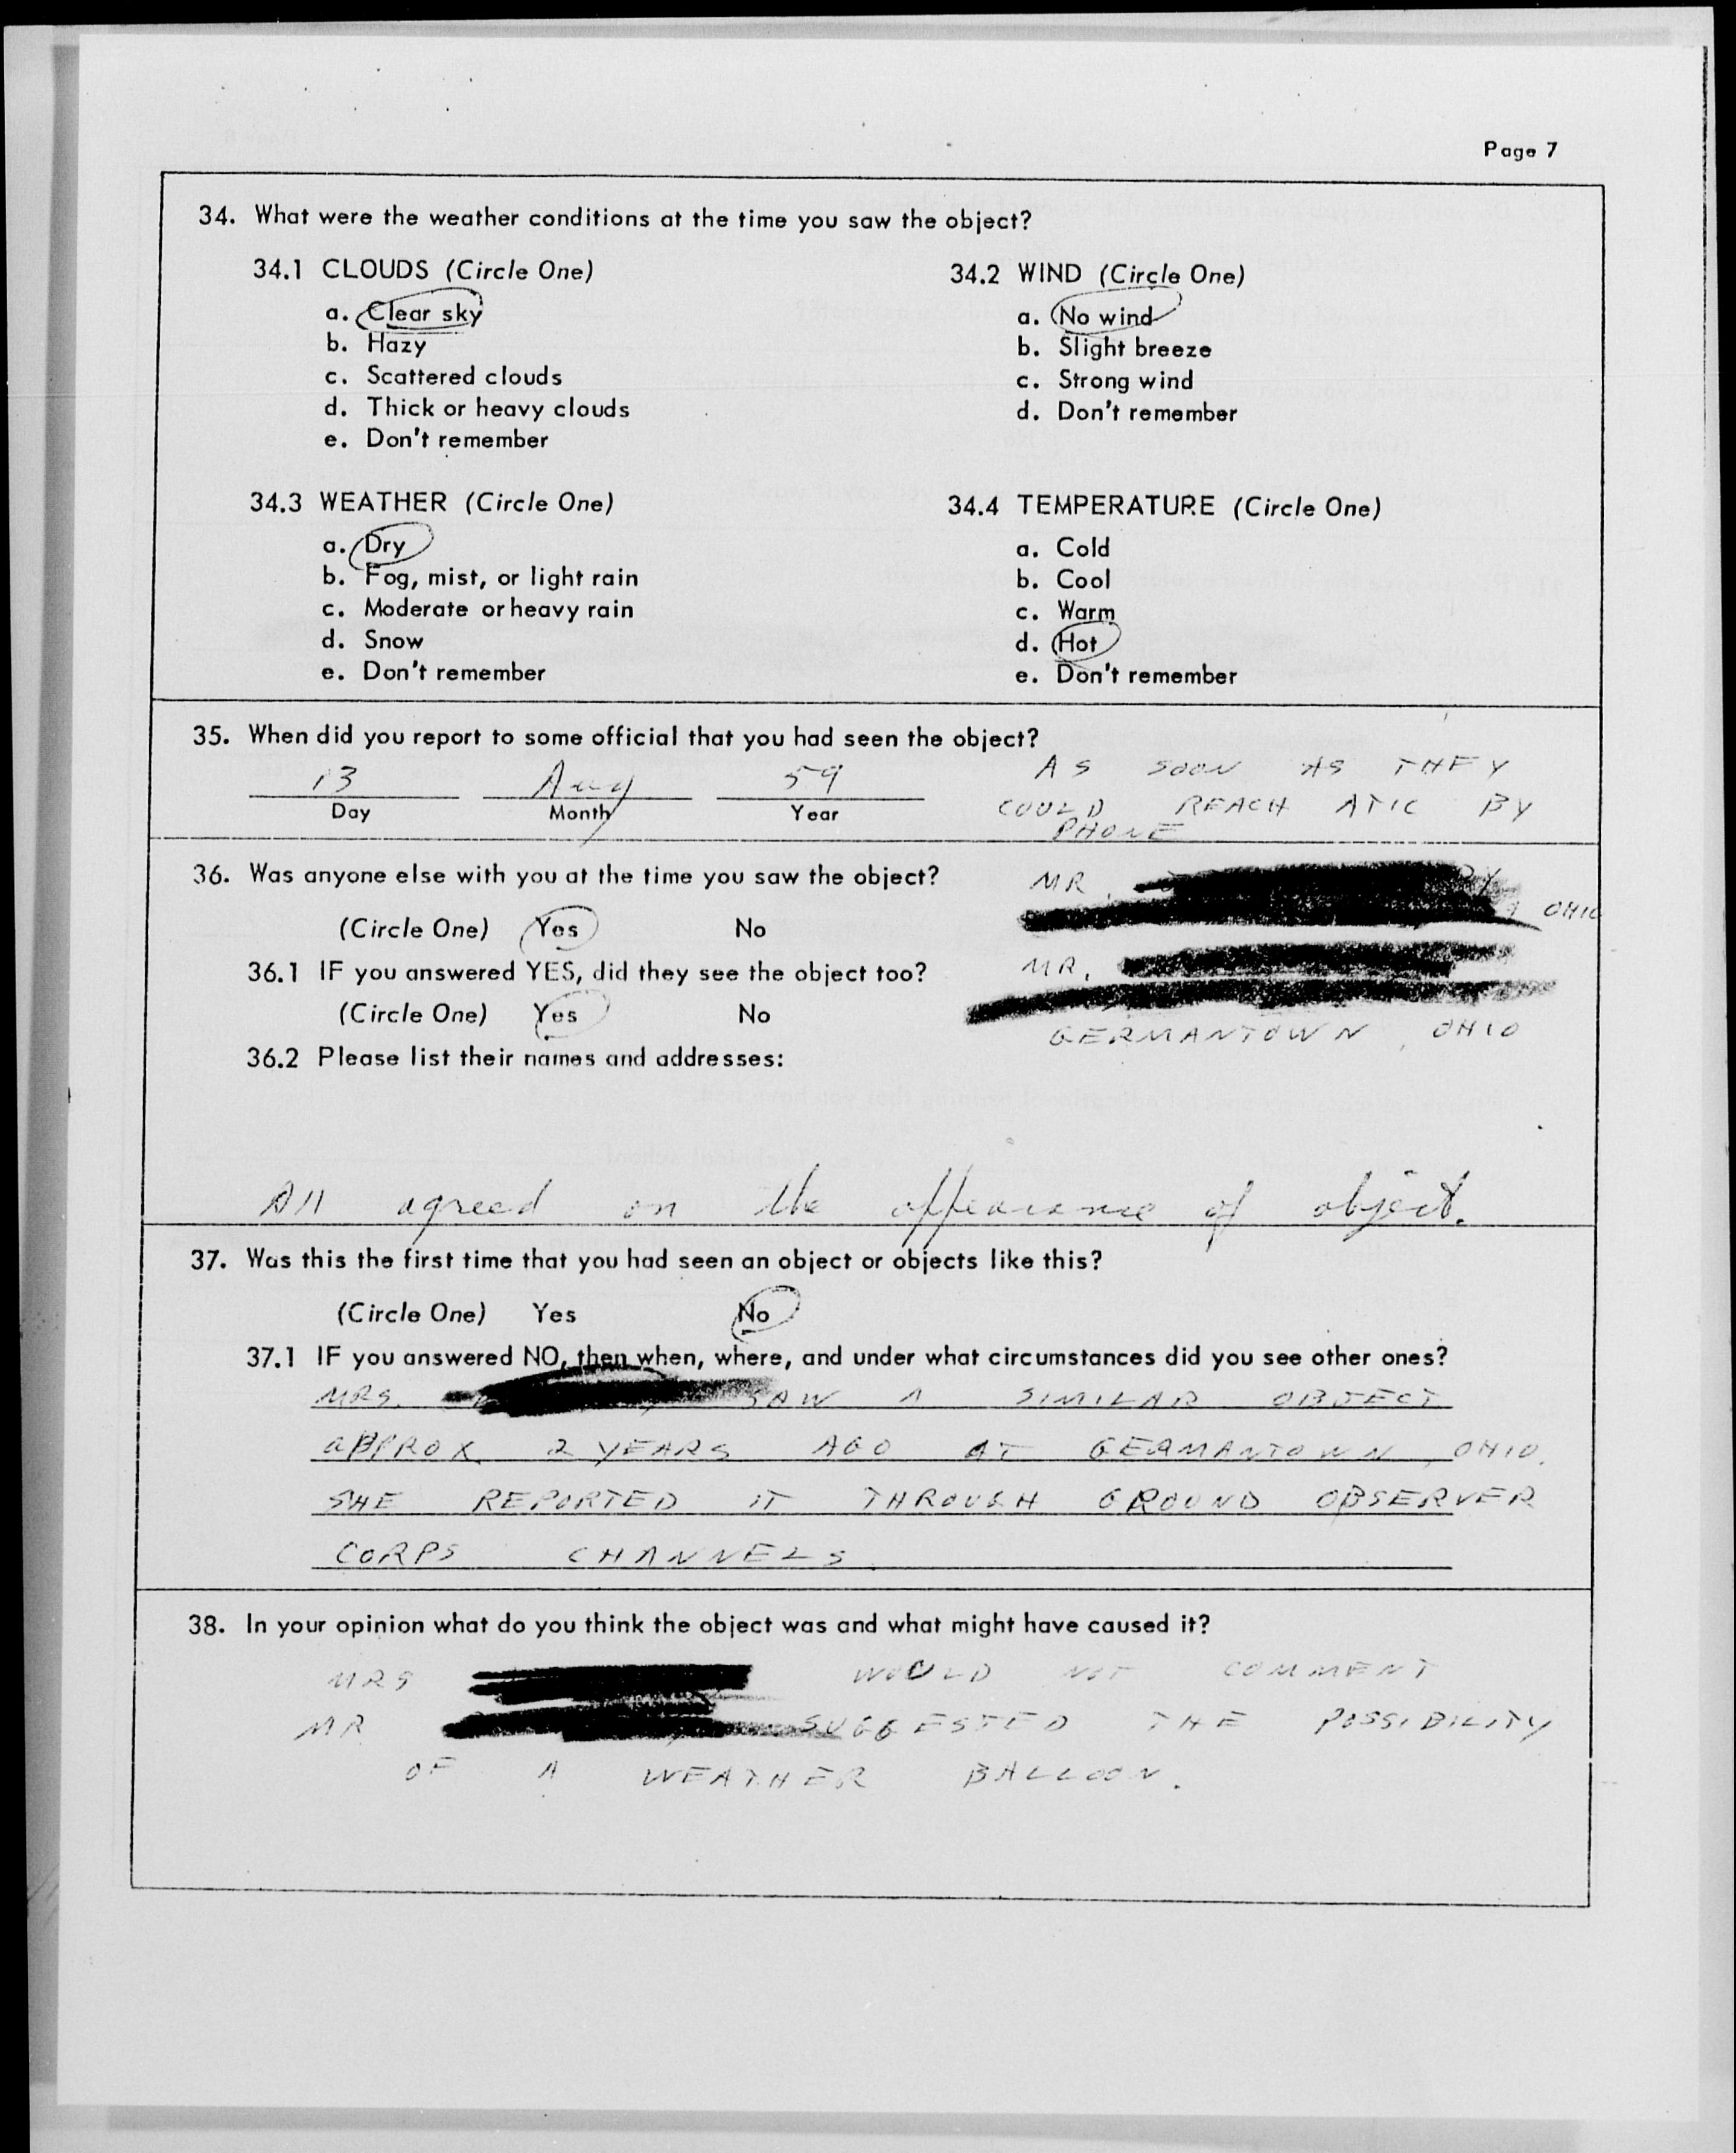 Page 7
34. What were the weather conditions at the time you saw the object?
34.1 CLOUDS (Circle One)
a. Clear sky
b. Hazy
c. Scattered clouds
d. Thick or heavy clouds
e. Don't remember
34.2 WIND (Circle One)
a. No wind
b. Slight breeze
c. Strong wind
d. Don't remember
34.3 WEATHER (Circle One)
a. Dry
b. Fog, mist, or light rain
c. Moderate or heavy rain
d. Snow
e. Don't remember
34.4 TEMPERATURE (Circle One)
a. Cold
b. Cool
c. Warm
d. Hot
e. Don't remember
35. When did you report to some official that you had seen the object?
13 Aug 59
Day Month Year
AS SOON AS THEY
COULD REACH ATIC BY
PHONE
36. Was anyone else with you at the time you saw the object?
(Circle One) Yes No
36.1 IF you answered YES, did they see the object too?
(Circle One) Yes No
36.2 Please list their names and addresses:
MR.
OHIO
MR.
GERMANTOWN, OHIO
All agreed on the appearance of object.
37. Was this the first time that you had seen an object or objects like this?
(Circle One) Yes No
37.1 IF you answered NO, then when, where, and under what circumstances did you see other ones?
MRS. SAW A SIMILAR OBJECT
APPROX 2 YEARS AGO AT GERMANTOWN, OHIO.
SHE REPORTED IT THROUGH GROUND OBSERVER
CORPS CHANNELS
38. In your opinion what do you think the object was and what might have caused it?
MRS WOULD NOT COMMENT
MR SUGGESTED THE POSSIBILITY
OF A WEATHER BALLOON.